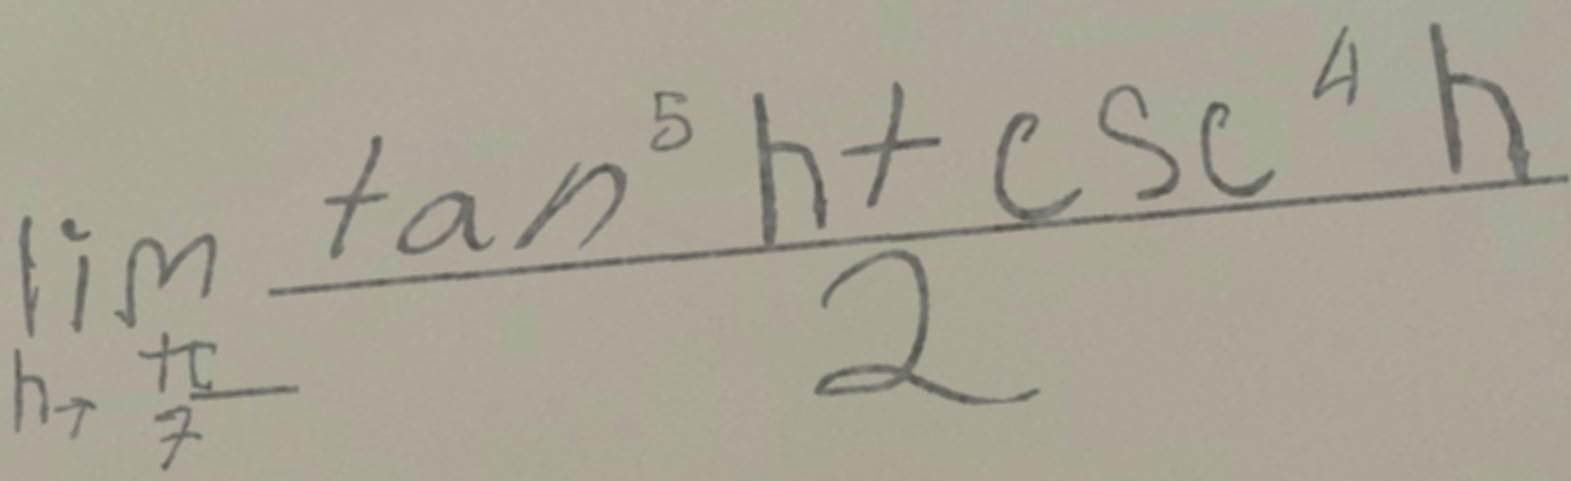 lim_{h→ π/7} \frac{tan^5 h + csc^4 h}{2}